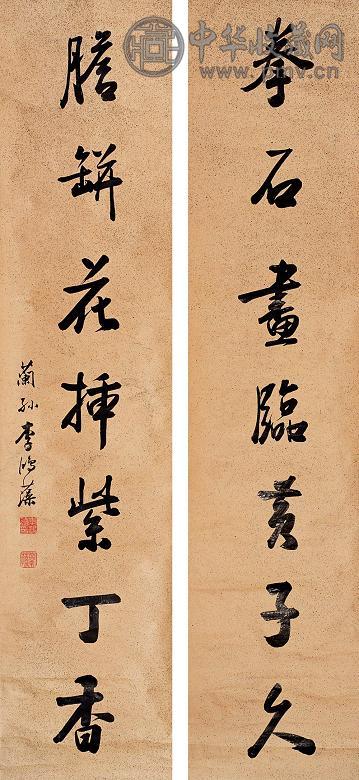 中华收藏网
www.pmv.cn
拳石畫臨黃子久
膽缾花插紫丁香
蘭孫李鴻藻